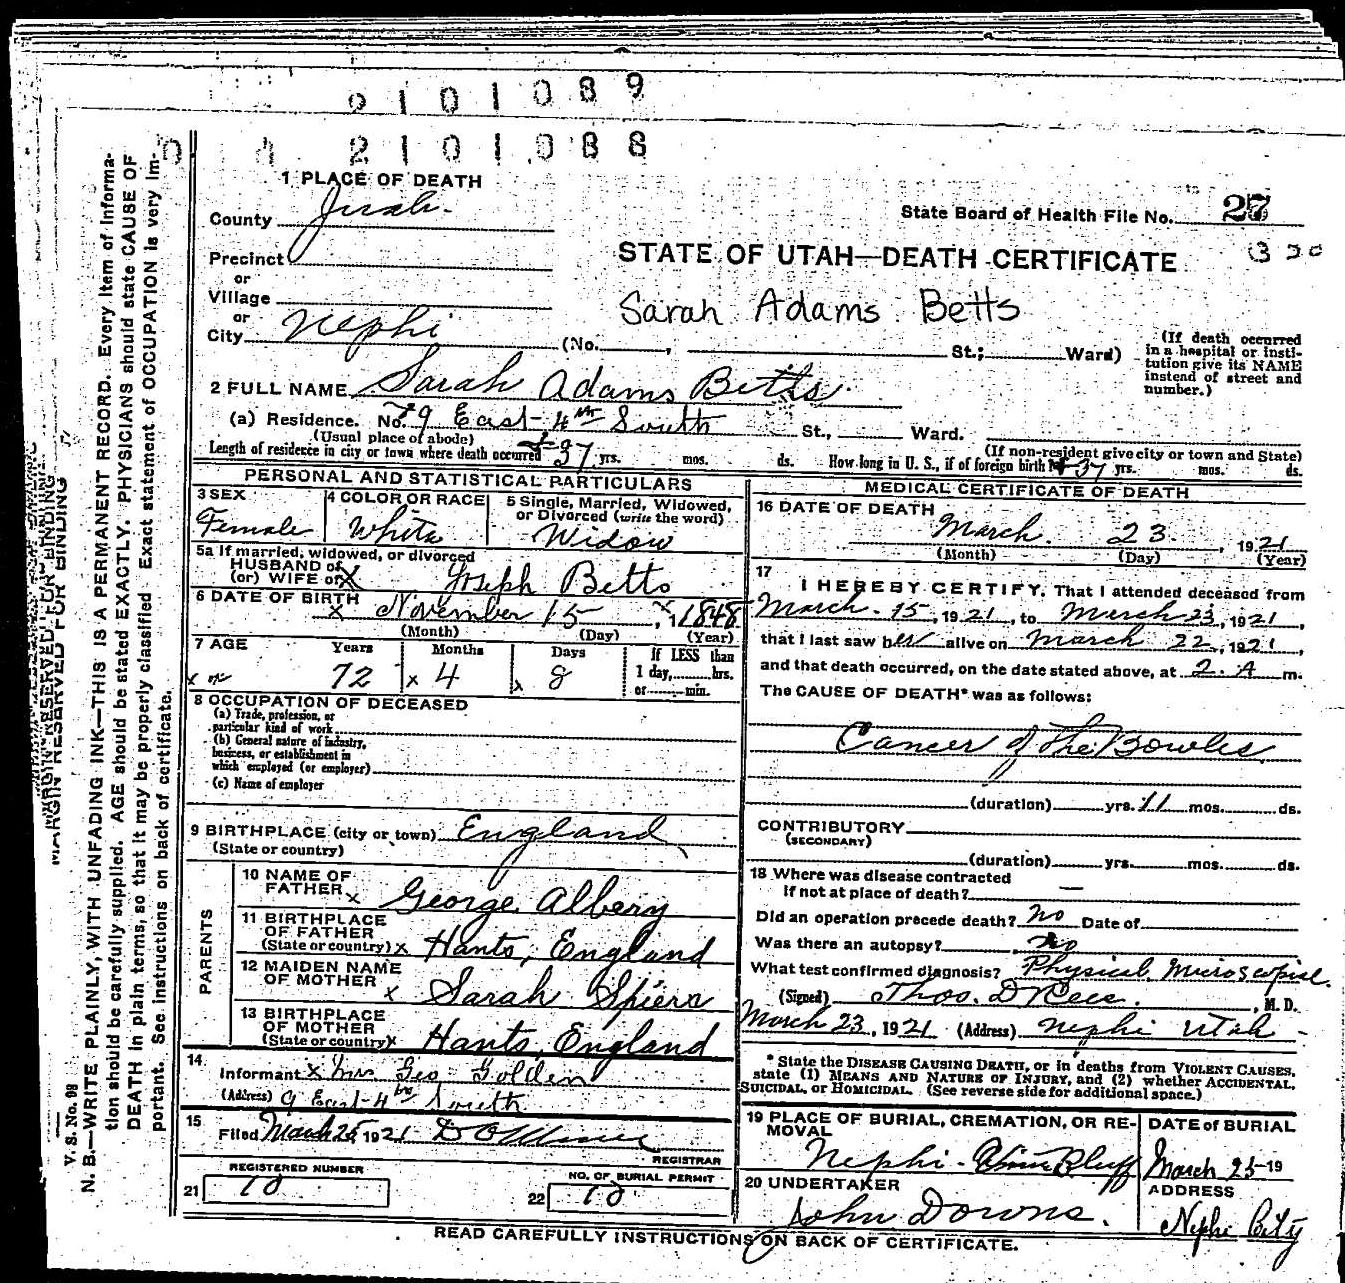 2101089
2101088
1 PLACE OF DEATH
County Juab.
State Board of Health File No. 27
320
Precinct
or
Village
or
City Nephi
STATE OF UTAH—DEATH CERTIFICATE
Sarah Adams Betts
(No. , St.; Ward)
(If death occurred in a hospital or institution give its NAME instead of street and number.)
2 FULL NAME Sarah Adams Betts.
(a) Residence. No. 9 East 4th South St., Ward.
(Usual place of abode) (If non-resident give city or town and State)
Length of residence in city or town where death occurred 37 yrs. mos. ds. How long in U. S., if of foreign birth? 37 yrs. mos. ds.
PERSONAL AND STATISTICAL PARTICULARS
3 SEX
Female
4 COLOR OR RACE
White
5 Single, Married, Widowed, or Divorced (write the word)
Widow
5a If married, widowed, or divorced
HUSBAND of
(or) WIFE of X Joseph Betts
6 DATE OF BIRTH
x November 15 , x 1848
(Month) (Day) (Year)
7 AGE Years Months Days If LESS than
1 day, hrs.
or min.
x or 72 x 4 x 8
8 OCCUPATION OF DECEASED
(a) Trade, profession, or particular kind of work
(b) General nature of industry, business, or establishment in which employed (or employer)
(c) Name of employer
9 BIRTHPLACE (city or town) England
(State or country)
PARENTS
10 NAME OF FATHER x George Albery
11 BIRTHPLACE OF FATHER
(State or country) x Hants, England
12 MAIDEN NAME OF MOTHER x Sarah Spiers
13 BIRTHPLACE OF MOTHER
(State or country) x Hants, England
14
Informant x Mrs Geo Golden
(Address) 9 East 4th South
15
Filed March 25, 1921
REGISTRAR
REGISTERED NUMBER
21 10
NO. OF BURIAL PERMIT
22 10
MEDICAL CERTIFICATE OF DEATH
16 DATE OF DEATH
March 23 , 1921
(Month) (Day) (Year)
17
I HEREBY CERTIFY, That I attended deceased from
March 15, 1921, to March 23, 1921,
that I last saw her alive on March 22, 1921,
and that death occurred, on the date stated above, at 2. A m.
The CAUSE OF DEATH* was as follows:
Cancer of The Bowles
(duration) yrs. 11 mos. ds.
CONTRIBUTORY
(SECONDARY)
(duration) yrs. mos. ds.
18 Where was disease contracted
If not at place of death? —
Did an operation precede death? No Date of
Was there an autopsy? No
What test confirmed diagnosis? Physical, Microscopise.
(Signed) Thos. D Rees. , M. D.
March 23, 1921 (Address) Nephi Utah
* State the DISEASE CAUSING DEATH, or in deaths from VIOLENT CAUSES,
state (1) MEANS AND NATURE OF INJURY, and (2) whether ACCIDENTAL,
SUICIDAL, or HOMICIDAL. (See reverse side for additional space.)
19 PLACE OF BURIAL, CREMATION, OR REMOVAL
Nephi - Vine Bluff
DATE of BURIAL
March 25-19
20 UNDERTAKER
John Downs.
ADDRESS
Nephi City
READ CAREFULLY INSTRUCTIONS ON BACK OF CERTIFICATE.
V. S. No. 98
MARGIN RESERVED FOR BINDING
N. B.—WRITE PLAINLY, WITH UNFADING INK—THIS IS A PERMANENT RECORD. Every item of information
should be carefully supplied. AGE should be stated EXACTLY. PHYSICIANS should state CAUSE OF
DEATH in plain terms, so that it may be properly classified. Exact statement of OCCUPATION is very important.
See instructions on back of certificate.